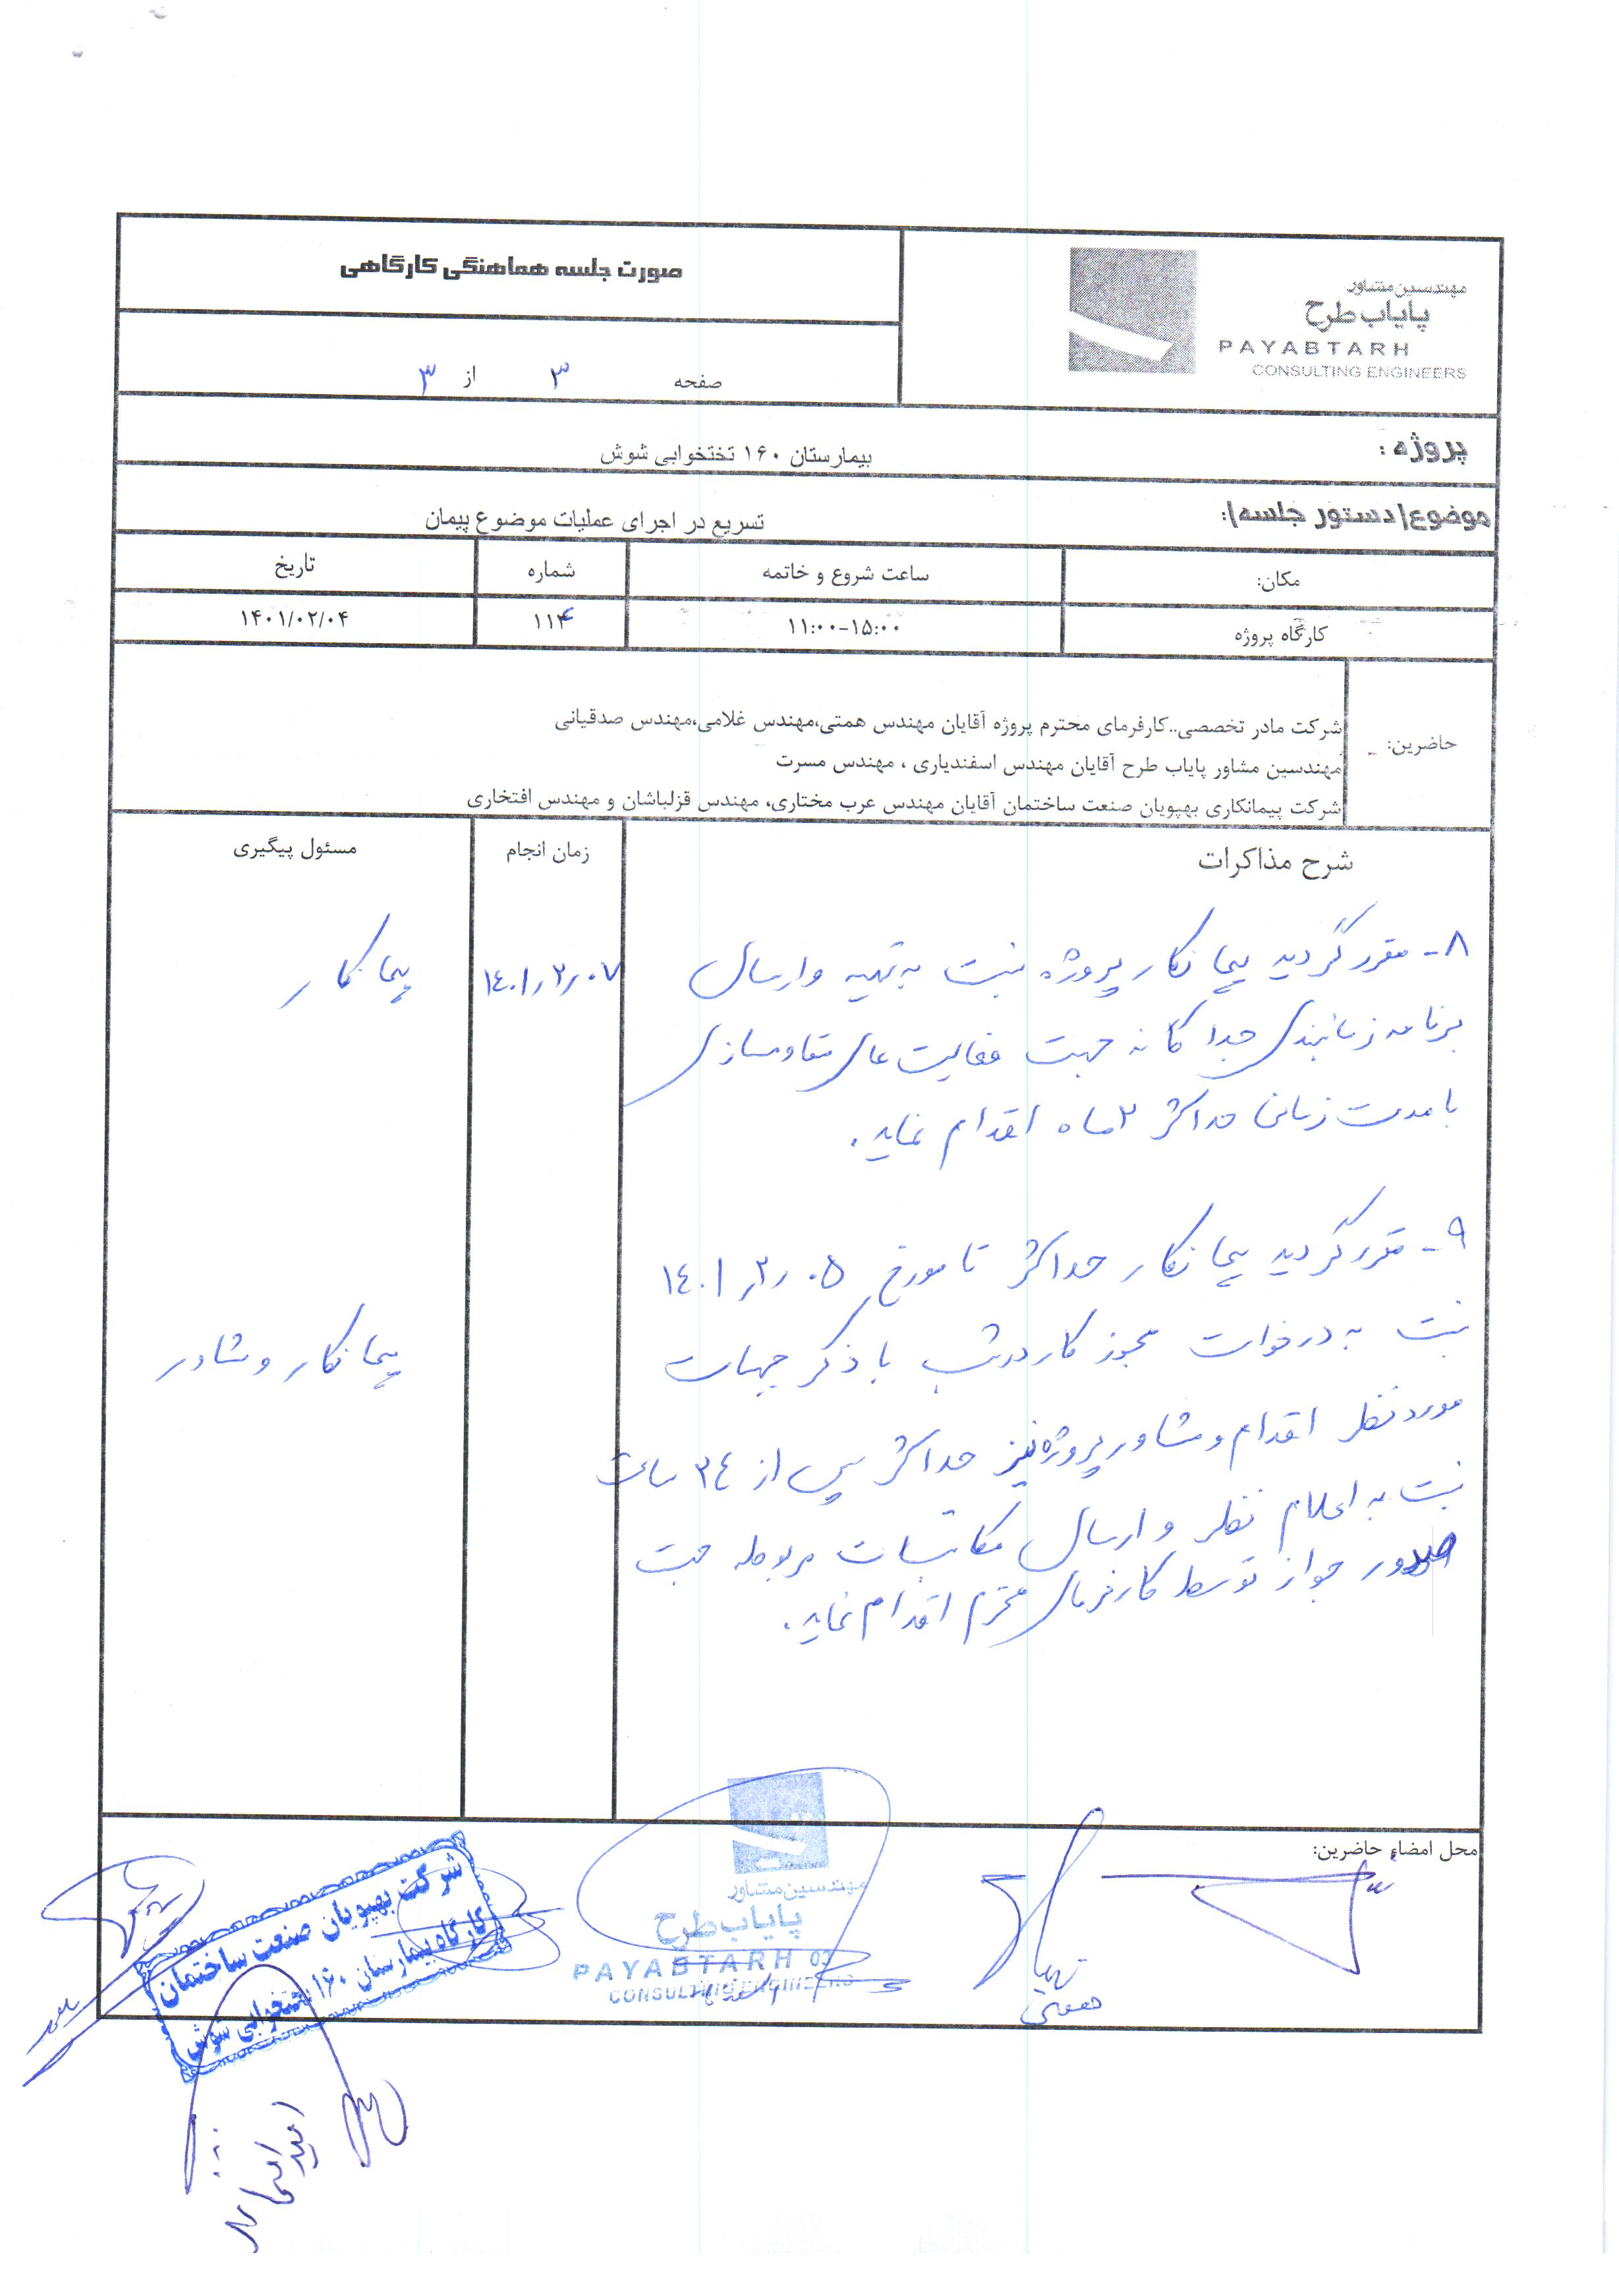 صورت جلسه هماهنگی کارگاهی
مهندسین مشاور
پایاب طرح
PAYABTARH
CONSULTING ENGINEERS
صفحه ۳ از ۳
پروژه :
بیمارستان ۱۶۰ تختخوابی شوش
موضوع(دستور جلسه):
تسریع در اجرای عملیات موضوع پیمان
مکان:
ساعت شروع و خاتمه
شماره
تاریخ
کارگاه پروژه
۱۱:۰۰-۱۵:۰۰
۱۱۴
۱۴۰۱/۰۲/۰۴
حاضرین:
شرکت مادر تخصصی..کارفرمای محترم پروژه آقایان مهندس همتی،مهندس غلامی،مهندس صدقیانی
مهندسین مشاور پایاب طرح آقایان مهندس اسفندیاری ، مهندس مسرت
شرکت پیمانکاری بهپویان صنعت ساختمان آقایان مهندس عرب مختاری، مهندس قزلباشان و مهندس افتخاری
شرح مذاکرات
زمان انجام
مسئول پیگیری
۸- مقرر گردید پیمانکار پروژه نسبت به تهیه و ارسال
برنامه زمانبندی جداگانه جهت فعالیت های مقاومسازی
با مدت زمان حداکثر ۲ ماه اقدام نماید.
۱۴۰۱٫۲٫۰۷
پیمانکار
۹- مقرر گردید پیمانکار حداکثر تا مورخ ۱۴۰۱٫۲٫۰۵
نسبت به درخواست مجوز کار در شب با ذکر جبهات
مورد نظر اقدام و مشاور پروژه نیز حداکثر پس از ۲۴ ساعت
نسبت به اعلام نظر و ارسال مکاتبات مربوطه جهت
صدور جواز توسط کارفرمای محترم اقدام نماید.
پیمانکار و مشاور
محل امضاء حاضرین:
مهندسین مشاور
پایاب طرح
PAYABTARH 03
CONSULTING ENGINEERS
شرکت بهپویان صنعت ساختمان
کارگاه بیمارستان ۱۶۰ تختخوابی شوش